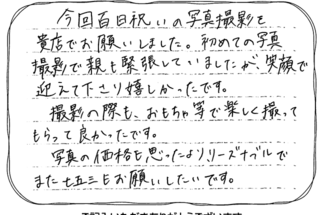 今回百日祝いの写真撮影を
貴店でお願いしました。初めての写真
撮影で親も緊張していましたが、笑顔で
迎えて下さり嬉しかったです。
撮影の際も、おもちゃ等で楽しく撮って
もらって良かったです。
写真の価格も思ったよりリーズナブルで
また七五三もお願いしたいです。